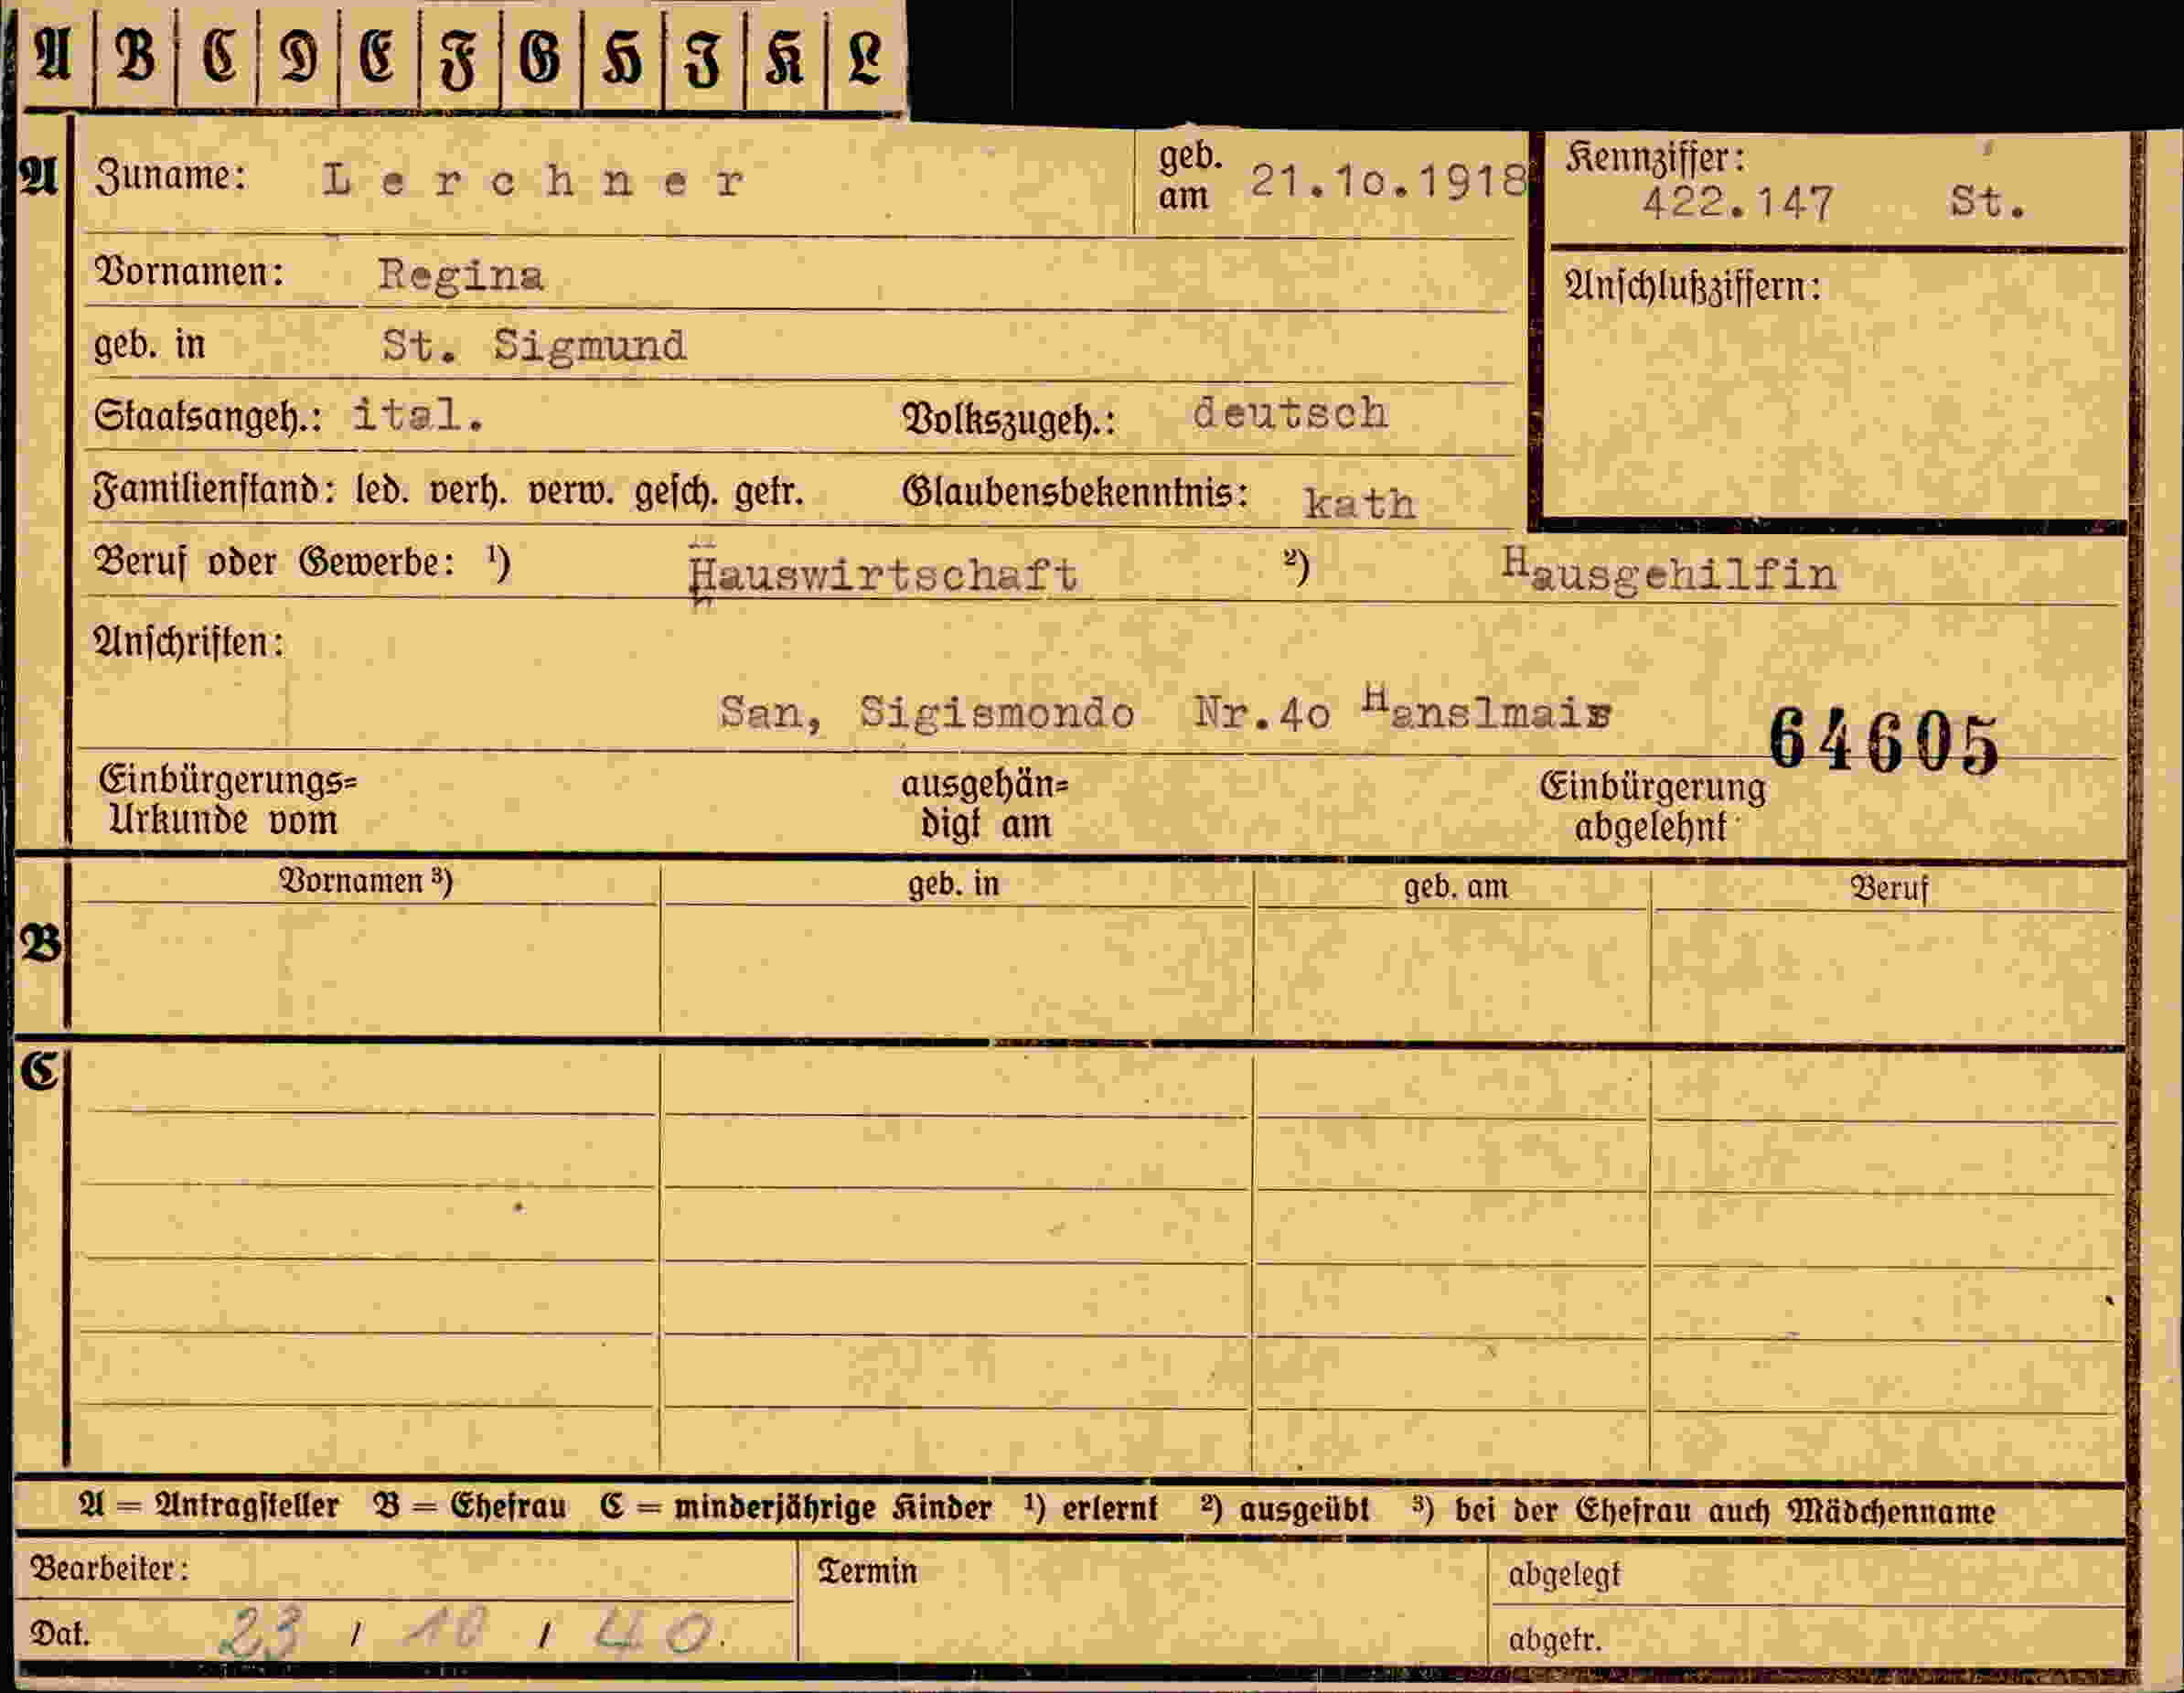 A B C D E F G H I K L
A Zuname: Lerchner geb. am 21.10.1918 Kennziffer: 422.147 St.
Vornamen: Regina Anschlußziffern:
geb. in St. Sigmund
Staatsangeh.: ital. Volkszugeh.: deutsch
Familienstand: led. verh. verw. gesch. getr. Glaubensbekenntnis: kath
Beruf oder Gewerbe: ¹) Hauswirtschaft ²) Hausgehilfin
Anschriften:
San, Sigismondo Nr.40
64605
Einbürgerungs= ausgehän= Einbürgerung
Urkunde vom digt am abgelehnt
Vornamen ³) geb. in geb. am Beruf
B
C
A = Antragsteller B = Ehefrau C = minderjährige Kinder ¹) erlernt ²) ausgeübt ³) bei der Ehefrau auch Mädchenname
Bearbeiter: Termin abgelegt
Dat. 23 / 10 / 40. abgetr.